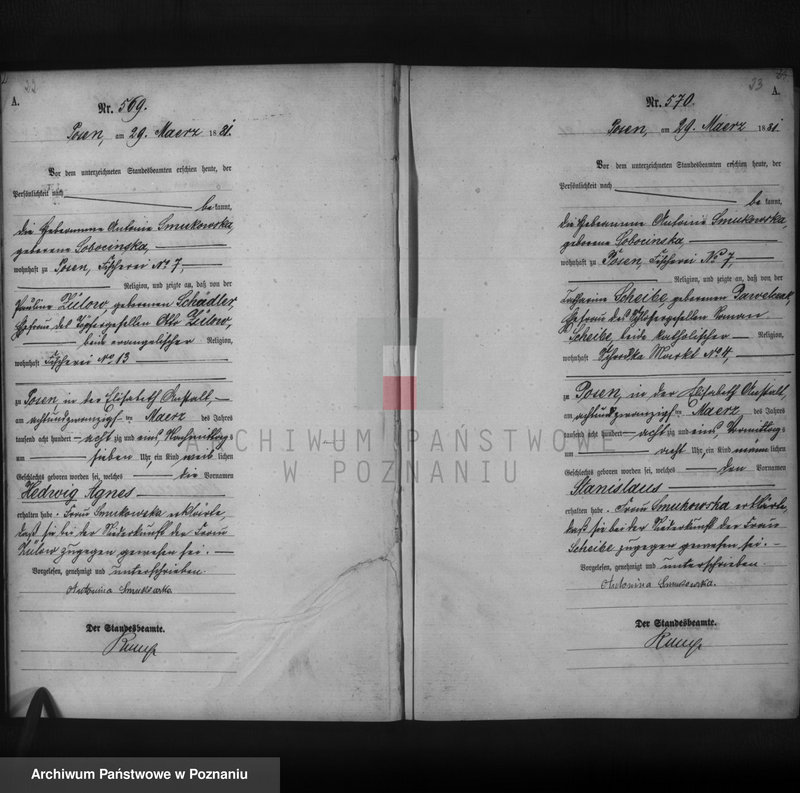 22
A.
Nr. 569.
Posen, am 29. Maerz 1881.
Vor dem unterzeichneten Standesbeamten erschien heute, der
Persönlichkeit nach
be kannt,
die Hebamme Antonie Smukowska,
geborene Sobocinska,
wohnhaft zu Posen, Fischerei No 7,
Religion, und zeigte an, daß von der
Pauline Zülow, geborenen Schädler,
Ehefrau des Töpfergesellen Otto Zülow,
beide evangelischer Religion,
wohnhaft Fischerei No 13
zu Posen, in der Elisabeth Anstalt
am achtundzwanzigsten Maerz des Jahres
tausend acht hundert achtzig und eins, Nachmittags
um sieben Uhr, ein Kind weiblichen
Geschlechts geboren worden sei, welches die Vornamen
Hedwig Agnes
erhalten habe. Frau Smukowska erklärte,
daß sie bei der Niederkunft der Frau
Zülow zugegen gewesen sei.
Vorgelesen, genehmigt und unterschrieben.
Antonina Smukowska
Der Standesbeamte.
23
A.
Nr. 570.
Posen, am 29. Maerz 1881.
Vor dem unterzeichneten Standesbeamten erschien heute, der
Persönlichkeit nach
be kannt,
die Hebamme Antonie Smukowska,
geborene Sobocinska,
wohnhaft zu Posen, Fischerei No 7,
Religion, und zeigte an, daß von der
Katharina Scheibe, geborenen Pawelczak,
Ehefrau des Schlossergesellen Roman
Scheibe, beide katholischer Religion,
wohnhaft Schrodka Markt No 4,
zu Posen, in der Elisabeth Anstalt,
am achtundzwanzigsten Maerz des Jahres
tausend acht hundert achtzig und eins, Vormittags
um acht Uhr, ein Kind männlichen
Geschlechts geboren worden sei, welches den Vornamen
Stanislaus
erhalten habe. Frau Smukowska erklärte,
daß sie bei der Niederkunft der Frau
Scheibe zugegen gewesen sei.
Vorgelesen, genehmigt und unterschrieben.
Antonina Smukowska.
Der Standesbeamte.
ARCHIWUM PAŃSTWOWE
W POZNANIU
Archiwum Państwowe w Poznaniu